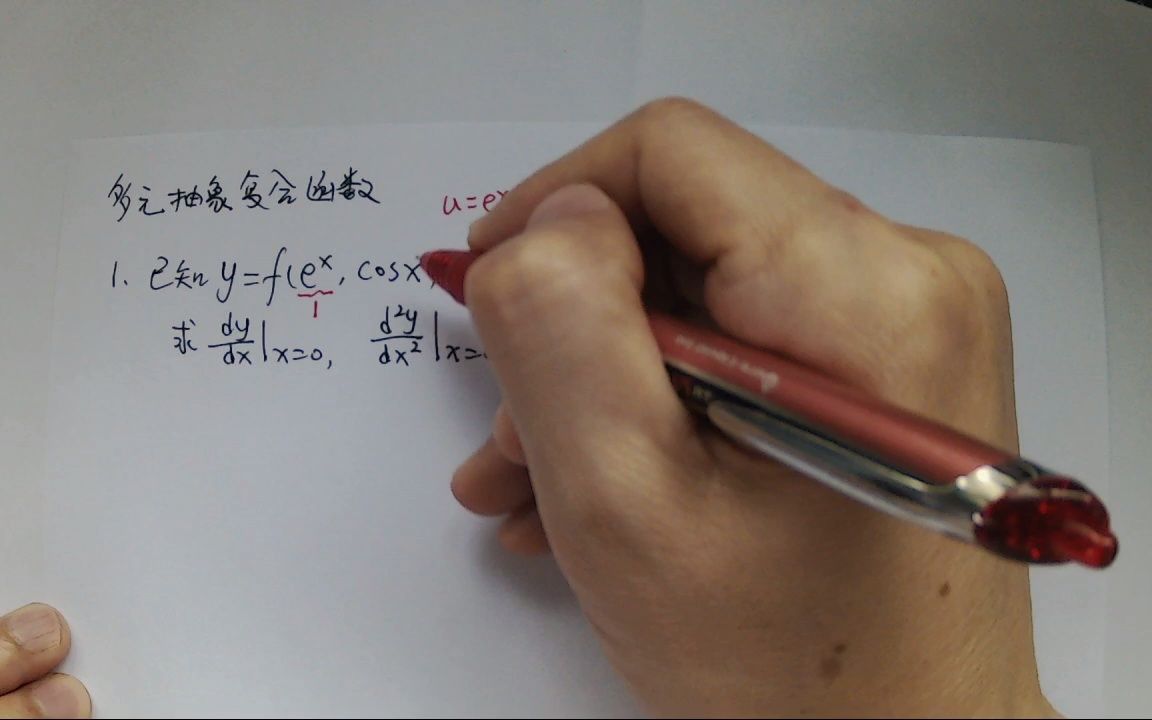 多元抽象复合函数
u=e^x
1. 已知 y=f(e^x, cosx
1
求 dy/dx|x=0, d²y/dx²|x=